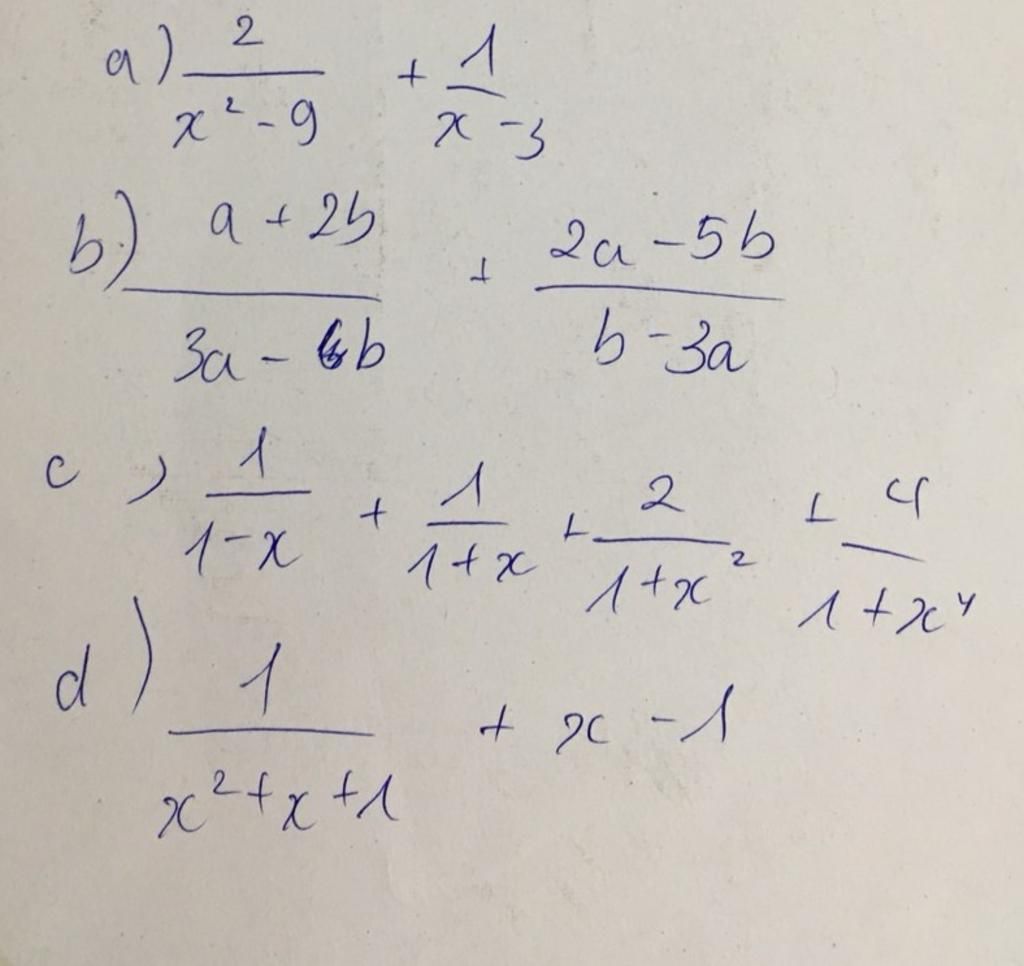 a) 2/(x² - 9) + 1/(x - 3)
b) (a + 2b)/(3a - b) + (2a - 5b)/(b - 3a)
c) 1/(1 - x) + 1/(1 + x) + 2/(1 + x²) + 4/(1 + x⁴)
d) 1/(x² + x + 1) + x - 1